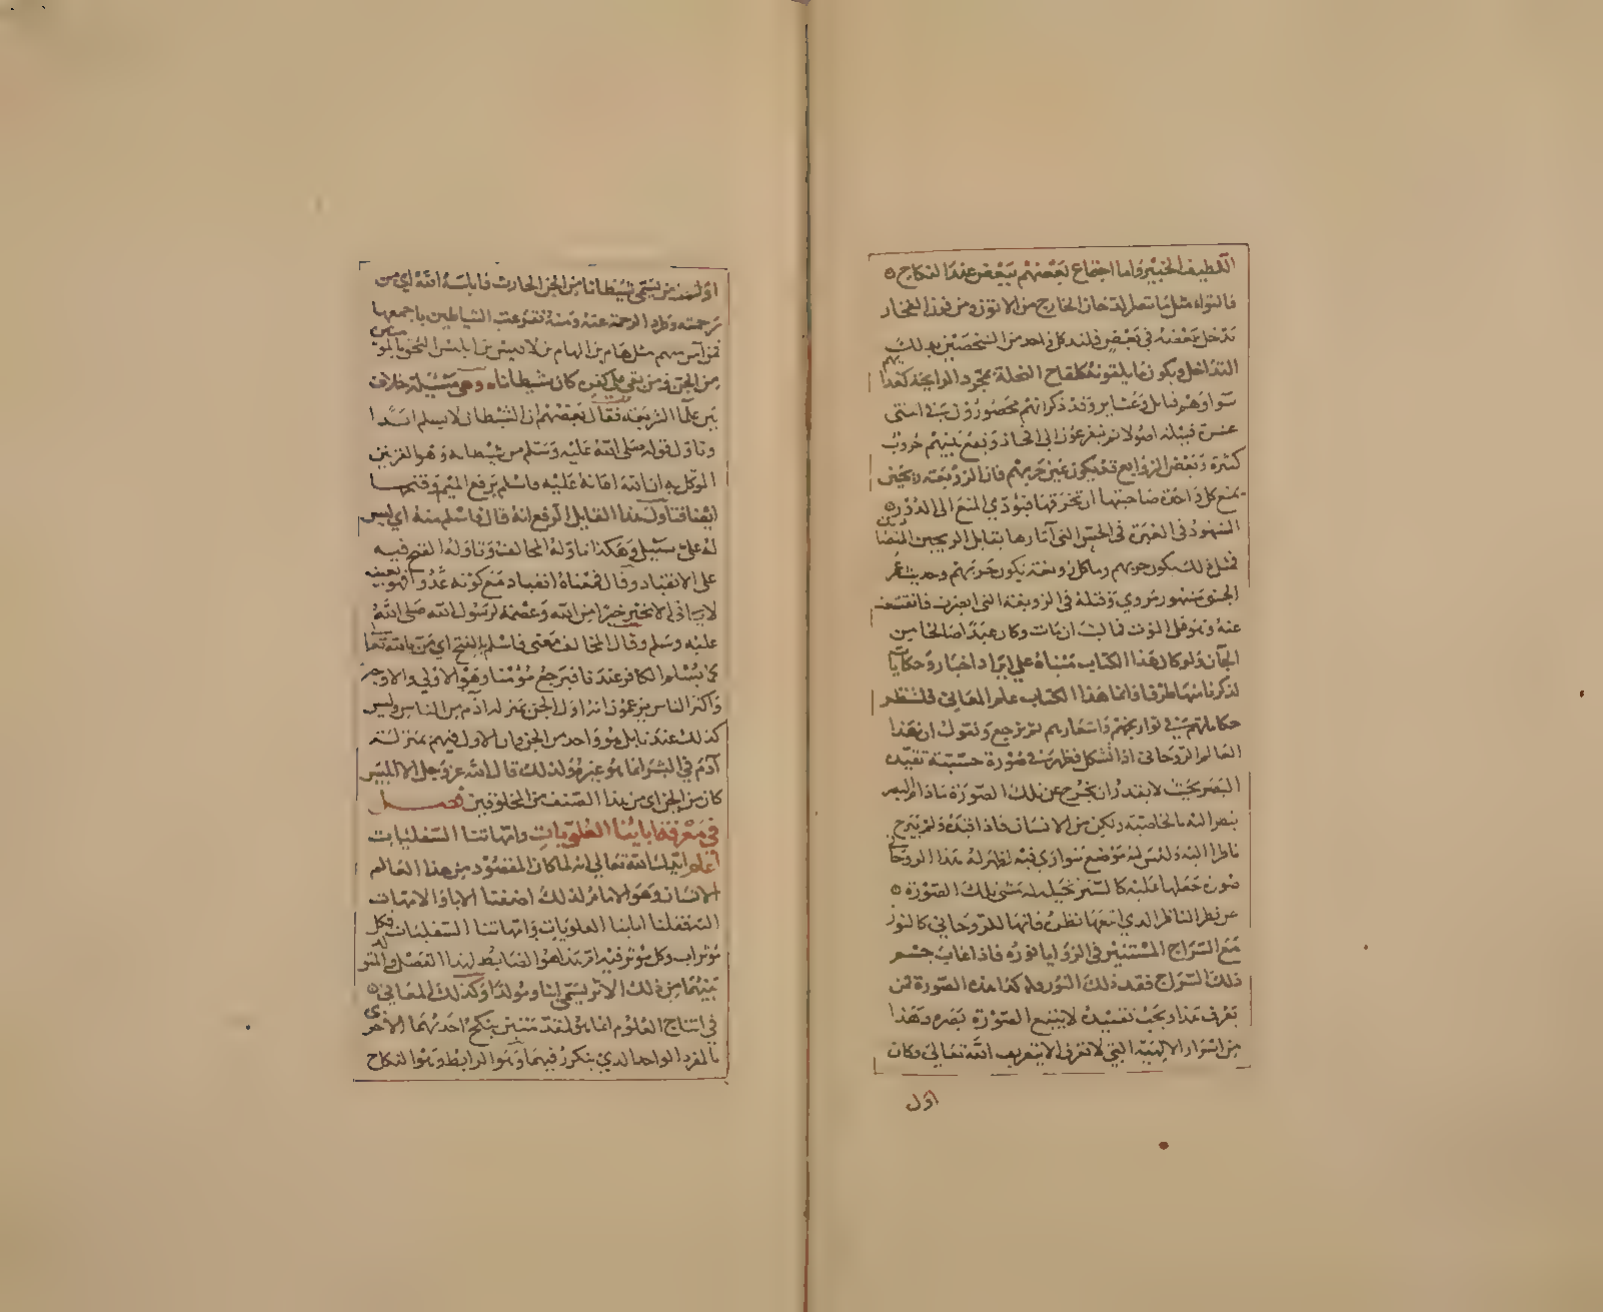 اللطيف الخبير واما اجتماع بعضهم ببعض عند النكاح
فالتواء مثل ما تبصر الدخان الخارج من الاتون ومن فرن الفخار
يدخل بعضه في بعض فيلتذ كل واحد من الشخصين بذلك
التداخل ويكون ما يلقونه كلقاح النخلة بمجرد الرايحة كغذايهم
سواء وهم قبايل وعشاير وقد ذكر انهم محصورون في اثنتى
عشرة قبيلة اصولا ثم يتفرعون الى افخاذ وتقع بينهم حروب
كثيرة وبعض الزوابع قد يكون عين حربهم فان الزوبعة ريحين
يمنع كل واحدة صاحبتها ان تخرقها فيؤدي المنع الى الدور
المشهود في الغبرة في الحس التي آثارها بقابل الريحين المتضادين
فمثل ذلك يكون حربهم وما كل زوبعة تكون حربهم وحديث عمرو
الجني مشهور مروي وقتله في الزوبعة التي ابصرت فانقشعت
عنه وهو على الموت فما لبث ان مات وكان عبدا صالحا من
الجان ولو كان هذا الكتاب مبناه على ايراد اخبار وحكايات
لذكرنا منها طرفا وانما هذا الكتاب علم المعاني فلتنظر
حكاياتهم في تواريخهم واشعارهم ثم نرجع ونقول ان هذا
العالم الروحاني اذا تشكل فظهر في صورة حسية تقيده
البصر بحيث لا يقدر ان يخرج عن تلك الصورة ما دام البصر
ينظر اليه بالخاصية ولكن من الانسان فاذا قيده ولم يبرح
ناظرا اليه وليس له موضع يتوارى فيه اظهر له هذا الروحاني
صورة جعلها عليه كالستر يخيل له مشي تلك الصورة
عن نظر الناظر الذي اتبعها نظره فانها للروحاني كالنور
مع السراج المستنير في الزوايا نوره فاذا غاب جسم
ذلك السراج فقد ذلك النور وهكذا هذه الصورة فمن
يعرف هذا ويحب تقييده لا يتبع الصورة بصره وهذا
من اسرار الالهية التي لا تعرف الا بتعريف الله تعالى وكان
اول
اول من سمى شيطانا من الجن الحارث فابلسه الله اي من
رحمته وطرد الرحمة عنه ومنه تفرعت الشياطين باجمعها
فمن آمن منهم مثل هام بن الهام بن لاقيس بن ابليس التحق بالمومنين
من الجن ومن بقي على كفره كان شيطانا وهي مسئلة خلاف
بين علماء الشريعة فقال بعضهم ان الشيطان لا يسلم ابدا
وتاول قوله صلى الله عليه وسلم من شيطانه وهو القرين
الموكل به ان الله اعانه عليه فاسلم برفع الميم وفتحها
ايضا فتاول هذا القايل الرفع انه قال فاسلم منه اي ليس
له علي سبيل وهكذا تاوله المخالف وتاوله الفتح فيه
على الانقياد وقال فمعناه انقياد مع كونه عدوا فهو بعينه
لا يامرني الا بخير خبرا من الله وعصمة لرسول الله صلى الله
عليه وسلم وقال المخالف معنى فاسلم بالفتح اي آمن بالله تعالى
كما يسلم الكافر عندنا فيرجع مومنا وهو الاولى والاوجه
واكثر الناس يزعمون انه اول الجن بمنزلة آدم من الناس وليس
كذلك عندنا بل هو واحد من الجن وان الاول فيهم بمنزلة
آدم في البشر انما هو غيره ولذلك قال الله عز وجل الا ابليس
كان من الجن اي من هذا الصنف من المخلوقين فصل
في معرفة ابائنا العلويات وامهاتنا السفليات
اعلم ايدك الله تعالى انه لما كان المقصود من هذا العالم
الانسان وهو الامام لذلك اضفنا الاباء والامهات
اليه فقلنا اباينا العلويات وامهاتنا السفليات فكل
موثر اب وكل موثر فيه ام هذا هو الضابط لهذا الفصل والمتولد
بينهما من ذلك الاثر يسمى ابنا ومولدا وكذلك المعاني
في انتاج العلوم انما هو بمقدمتين ينكح احديهما الاخرى
بالمفرد الواحد الذي يتكرر فيهما وهو الرابط وهو النكاح